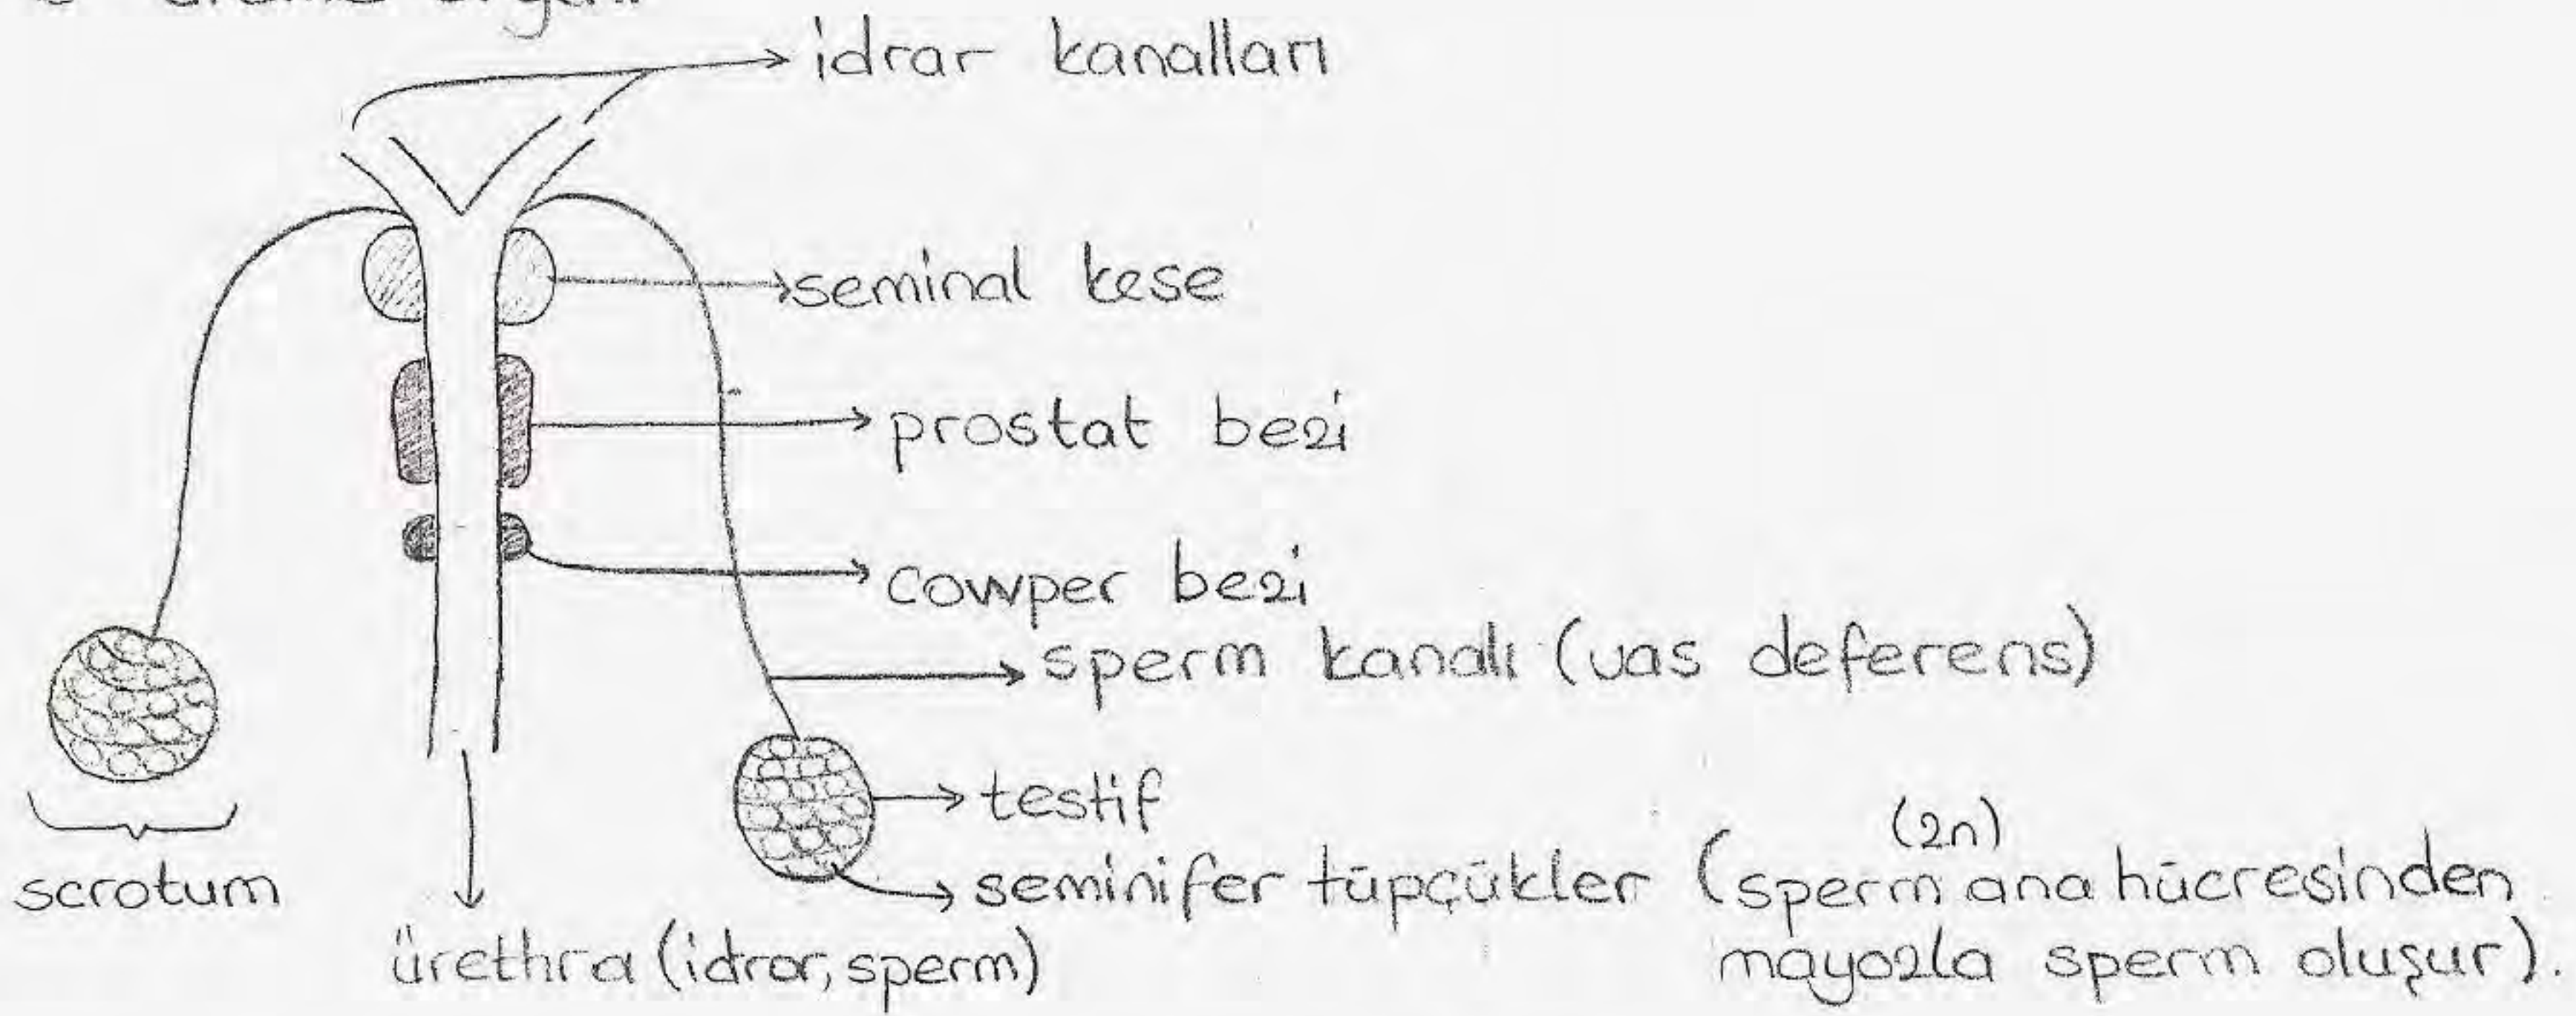 üreme organı
idrar kanalları
seminal kese
prostat bezi
cowper bezi
sperm kanalı (vas deferens)
testif
(2n)
seminifer tüpçükler (sperm ana hücresinden
mayozla sperm oluşur).
scrotum
ürethra (idrar, sperm)